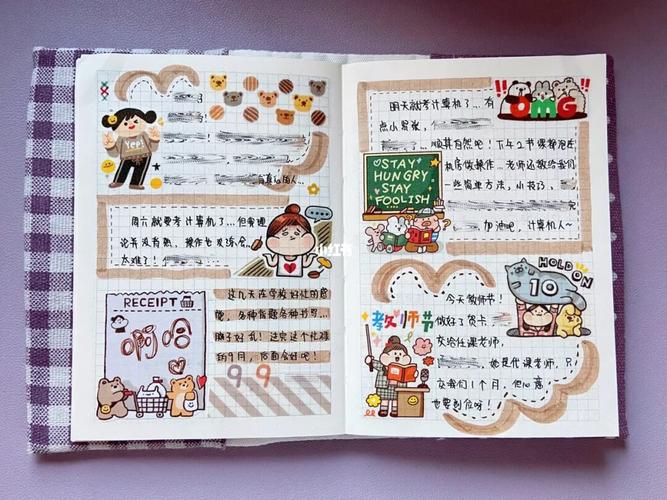 Yep!
周六就要考计算机了...但是理
论并没有熟,操作也没练会...
太难了!
小红书
RECEIPT
啊哈
这几天在学校好忙的感
觉,各种背题各种书写...
脑子好乱!过完这个忙碌
的9月,后面会好吧!
99
明天就考计算机了...有
点小紧张,
顺其自然吧!下午2节课都泡在
机房做操作...老师还教给我们
一些简单方法,小技巧,
加油吧,计算机人~
OMG
STAY
HUNGRY
STAY
FOOLISH
HOLD ON
10
教师节
今天教师节!
做好了贺卡,
交给任课老师,
她是代课老师,只
交我们1个月,但心意
也要到位呀!